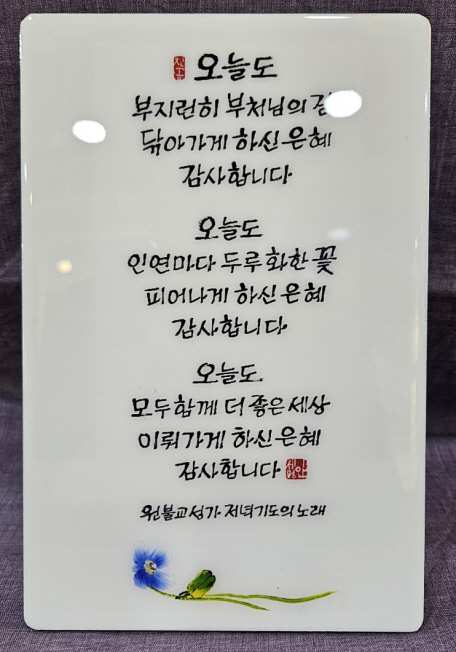 오늘도
부지런히 부처님의 길
닦아가게 하신 은혜
감사합니다
오늘도
인연마다 두루 화한 꽃
피어나게 하신 은혜
감사합니다
오늘도
모두함께 더 좋은 세상
이뤄가게 하신 은혜
감사합니다
원불교성가 저녁기도의 노래